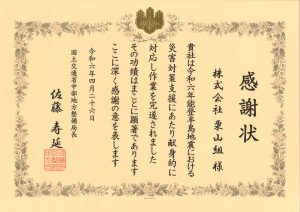 感謝状
株式会社 栗山組 様
貴社は令和六年能登半島地震における
災害対策支援にあたり献身的に
対応し作業を完遂されました
その功績はまことに顕著であります
ここに深く感謝の意を表します
令和六年四月二十六日
国土交通省中部地方整備局長
佐藤寿延